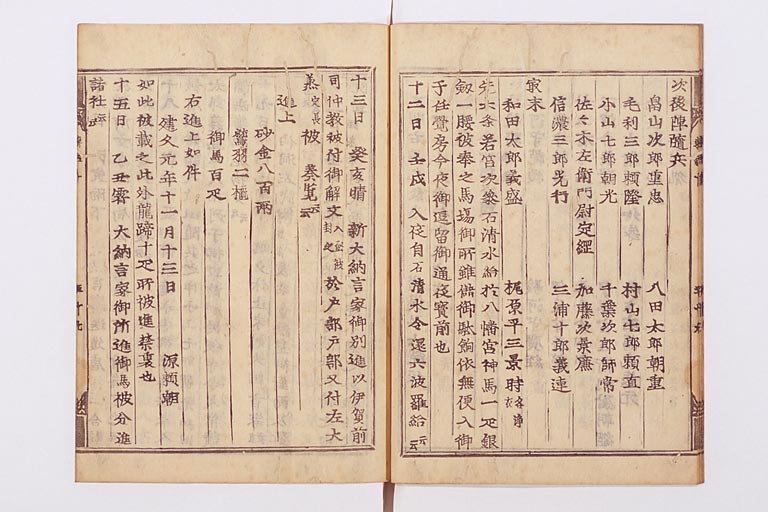 次後陣随兵
畠山次郎重忠 八田太郎朝重
毛利三郎頼隆 村山七郎頼直
小山七郎朝光 千葉次郎師常
佐々木左衛門尉定綱 加藤次景廉
信濃三郎光行 三浦十郎義連
最末
和田太郎義盛 梶原平三景時 各
先六条若宮次参石清水給於八幡宮神馬一疋銀
剱一腰被奉之馬場御所雖儲御駄餉依無便入御
于任覚房今夜御逗留御通夜宝前也
十二日 壬戌 入夜自石清水令還六波羅給云云
十三日 癸亥晴 新大納言家御別進以伊賀前
司仲教被付御解文入筥被封之於戸部戸部又付左大
丞定長被 奏覧云云
進上
砂金八百両
鷲羽二櫃
御馬百疋
右進上如件
建久元年十一月十三日 源頼朝
如此被載之此外龍蹄十疋所被進禁裏也
十五日 乙丑霽 大納言家御所進御馬被分進
諸社云云